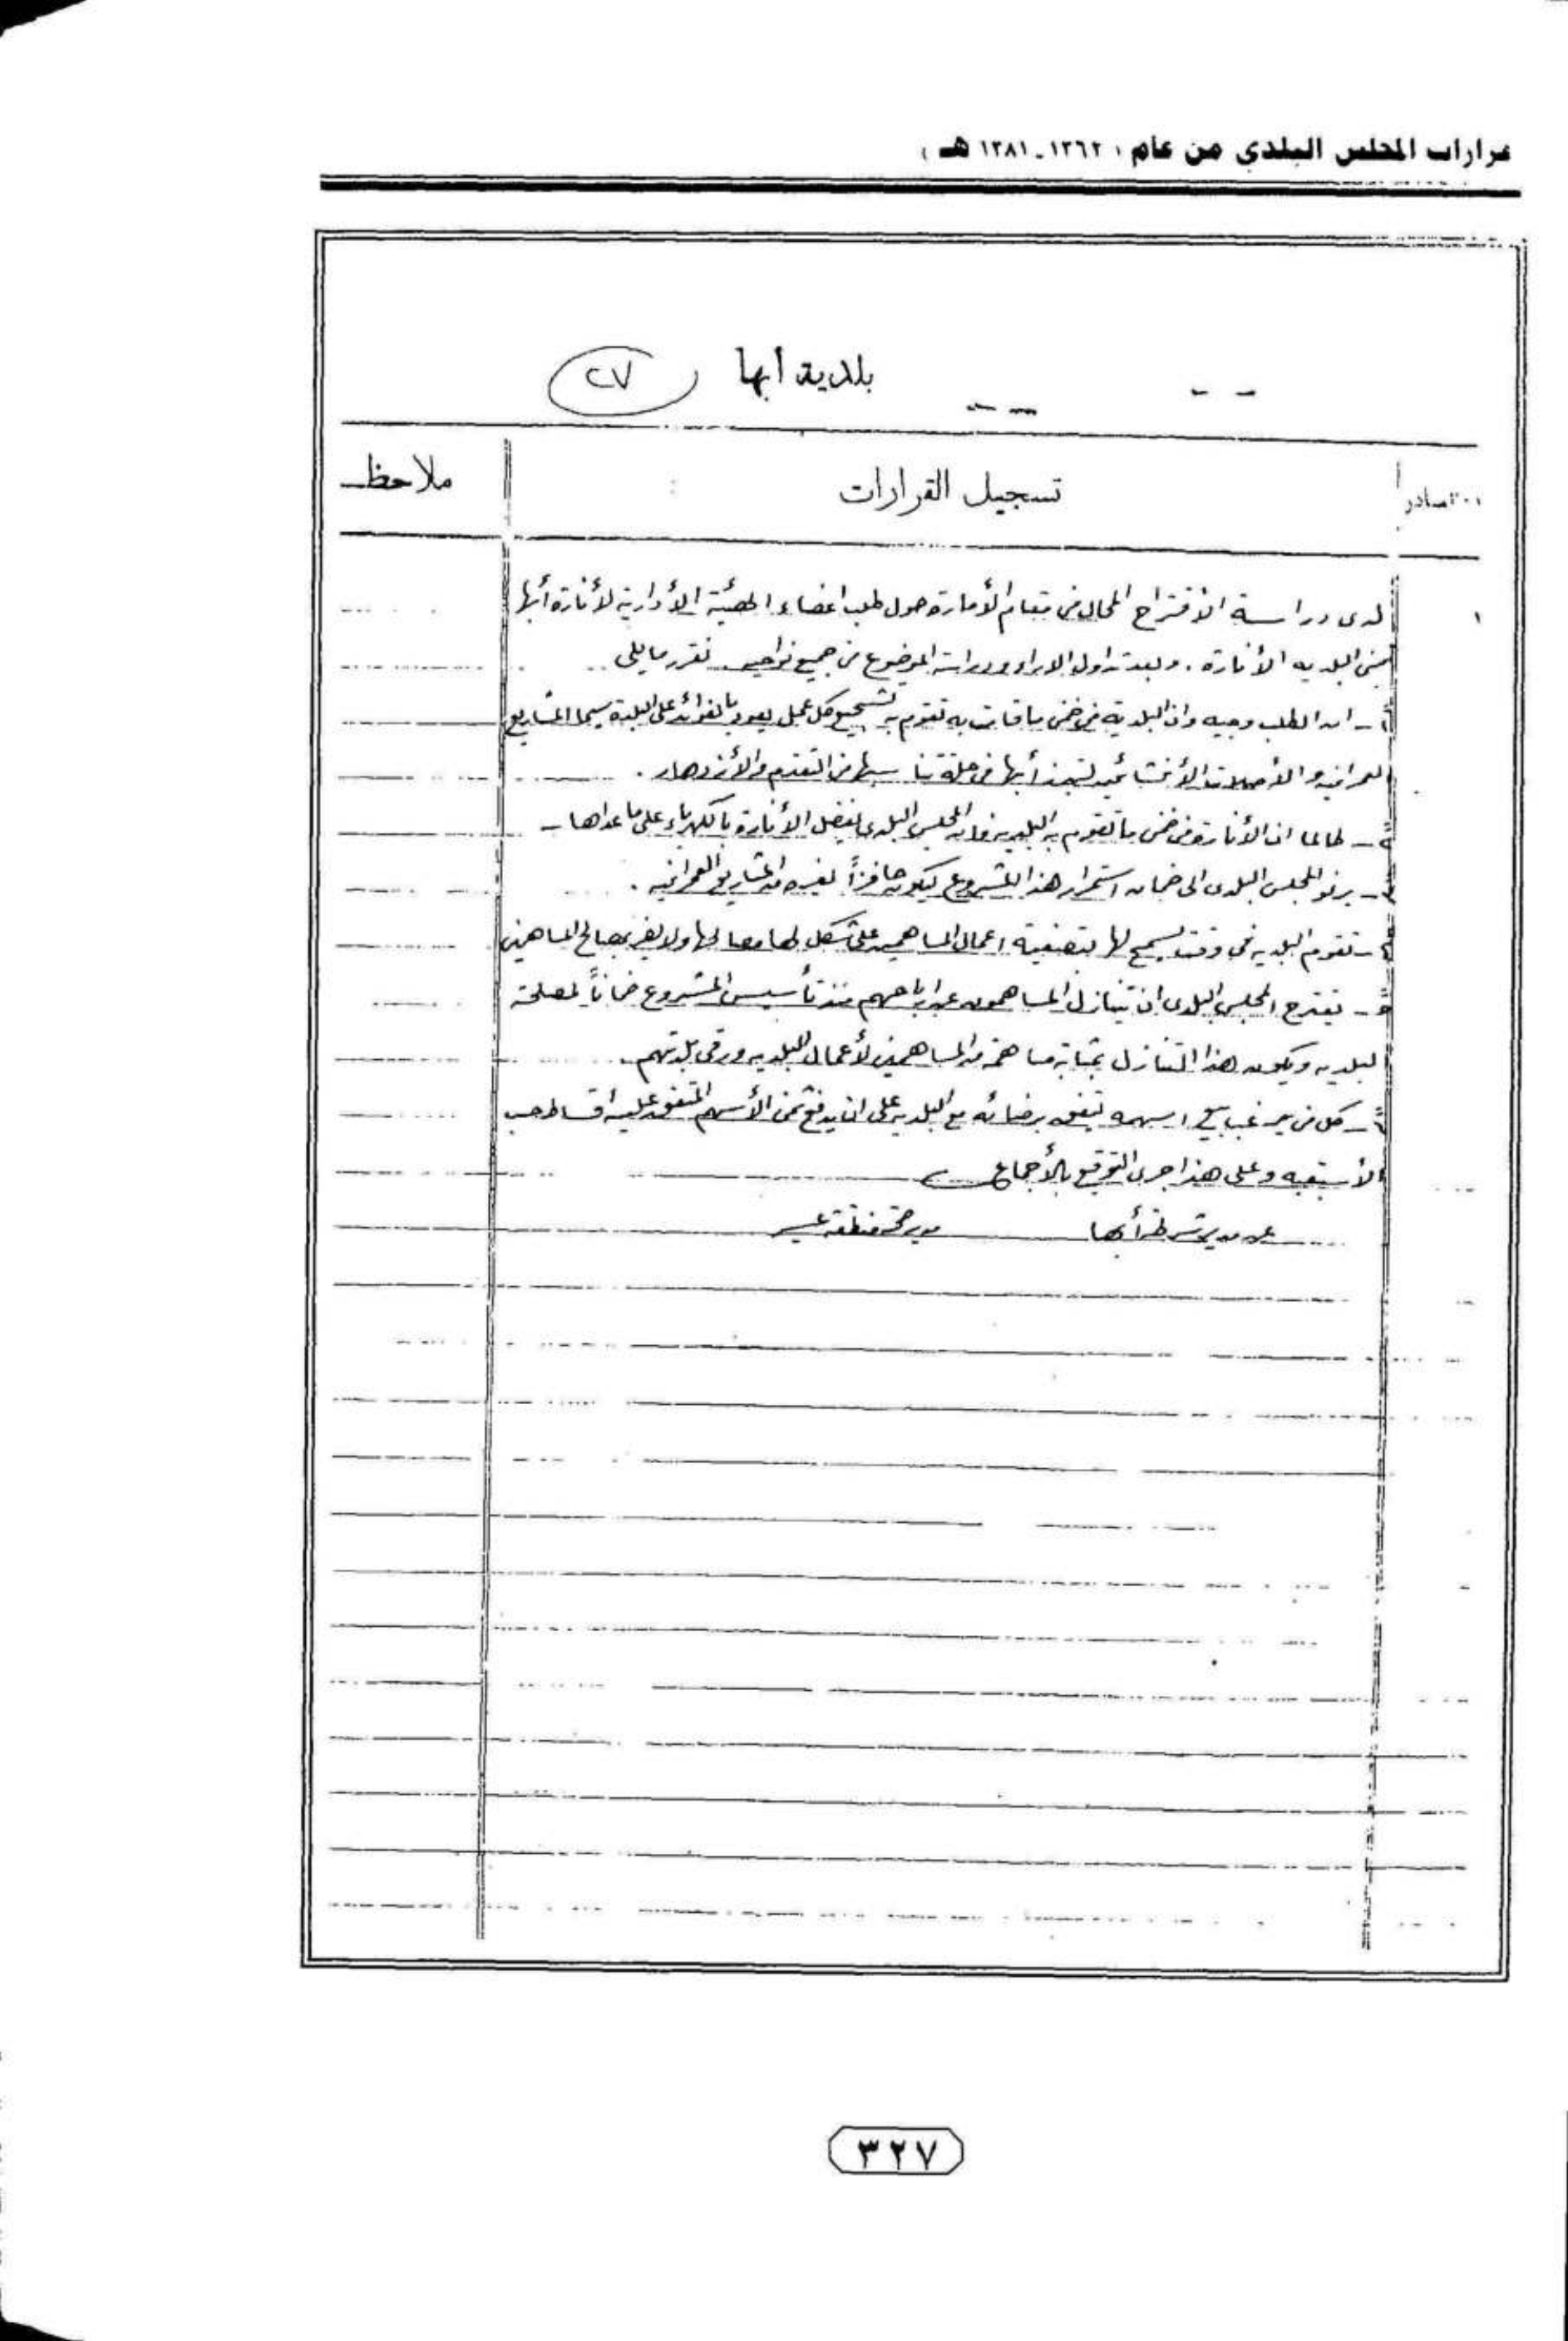 قرارات المجلس البلدي من عام ( ١٣٦٢ - ١٣٨١ هـ )
بلدية ابها ٢٧
صادر تسجيل القرارات ملاحظـ
١ لدى دراسة الأقتراح المحال من مقام الأمارة حول طلب اعضاء الهيئة الأدارية لأنارة أبها
البلديه الأنارة . وبعد تداول الاراء ودراسة الموضوع من جميع نواحيه تقرر مايلى
١ - ان الطلب وجيه وان البلدية من ضمن ما قامت به تقوم به تشجيع كل عمل يعود بالفوائد على البلدة سيما المشاريع
العمرانيه والأصلاحات الأنشائيه أبها من التقدم والأزدهار .
٢ - طالما ان الأنارة من ضمن ما تقوم به البلديه فان المجلس البلدى يفضل الأنارة بالكهرباء على ما عداها -
٣ - يرنو المجلس البلدى الى ضمان استمرار هذا المشروع ليكون حافزاً لغيره من المشاريع العمرانيه .
٤ - تقوم البلديه فى وقت يسمح لها بتصفية اعمال المساهمين على شكل ولا يضر بصالح المساهمين
٥ - يقترح المجلس البلدى ان يتنازل المساهمون عن ارباحهم منذ تأسيس المشروع ضماناً لمصلحة
البلديه ويكون هذا التنازل بمثابة مساهمة من المساهمين لأعمال البلديه ورقى بلدتهم
٦ - كل من يرغب بيع اسهمه يتفق برضائه مع البلديه على ان يدفع ثمن الأسهم المتفق عليه أقساط حسب
الأسبقيه وعلى هذا جرى التوقيع بالأجماع
عن مدير شرطة أبها مدير صحة منطقة عسير
٣٢٧